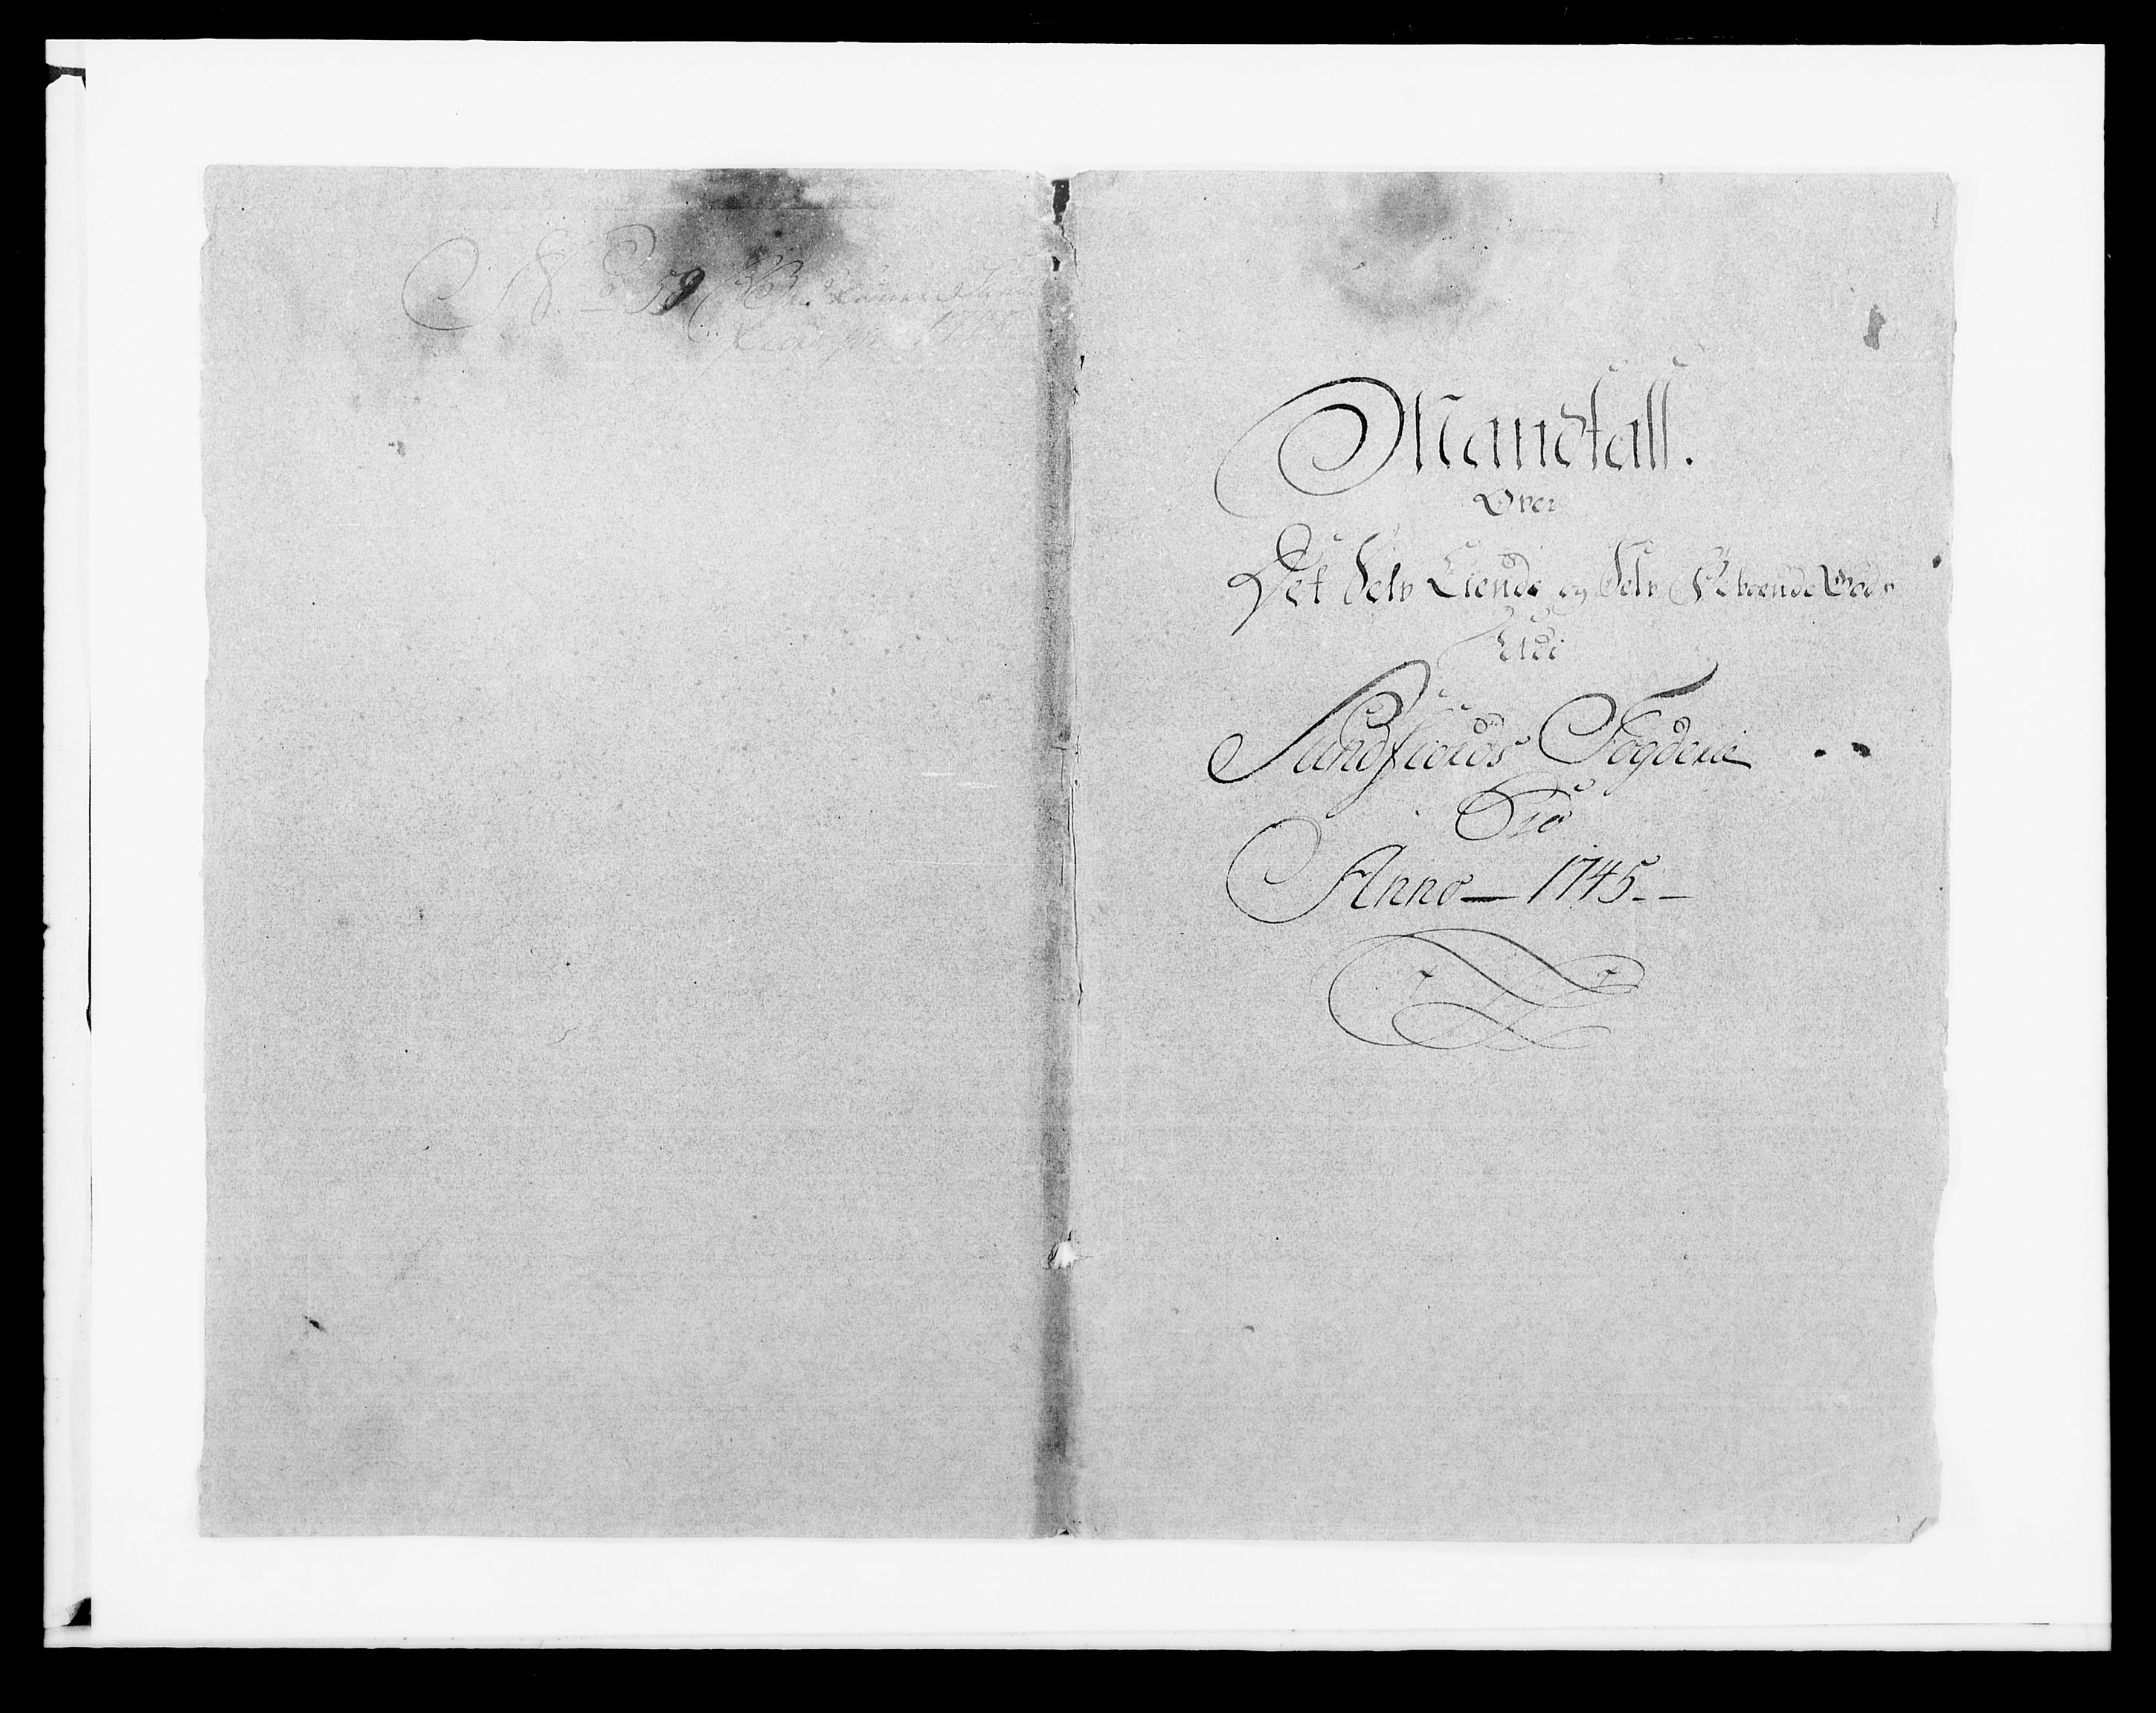 No 59
1745
Mandtall.
Over
Det Selv Eiende og Selv Gods
Udi
Sundfiords Fogderie
Pro
Anno — 1745 - -